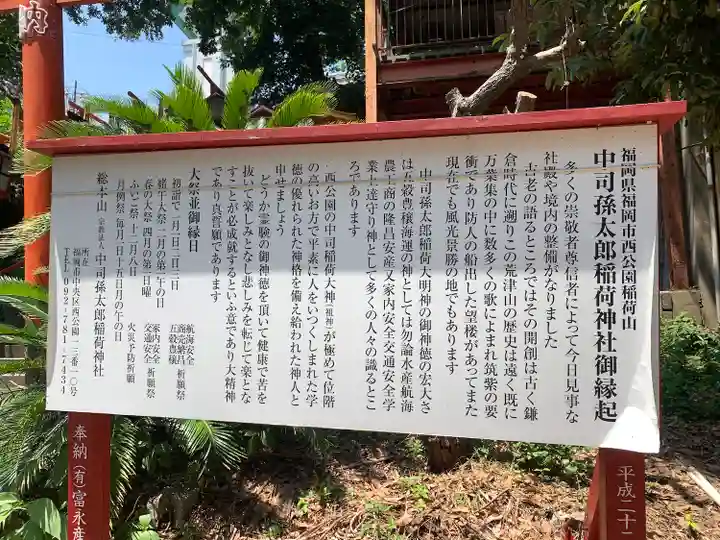 福岡県福岡市西公園稲荷山
中司孫太郎稲荷神社御縁起
多くの崇敬者尊信者によって今日見事な
社殿や境内の整備がなりました
古老の語るところではその開創は古く鎌
倉時代に遡りこの荒津山の歴史は遠く既に
万葉集の中に数多くの歌によまれ筑紫の要
衝であり防人の船出した望楼があってまた
現在でも風光景勝の地でもあります
中司孫太郎稲荷大明神の御神徳の宏大さ
は五穀豊穣海運の神としては勿論水産航海
農工商の隆昌安産又家内安全交通安全学
業上達守り神として多くの人々の識るとこ
ろであります
西公園の中司孫太郎稲荷大神(祖神)が極めて位階
の高いお方で平素に人をいつくしまれた学
徳の優れられた神格を備え給われた神人と
申せましょう
どうか霊験の御神徳を頂いて健康で苦を
抜いて楽しみとなし悲しみを転じて楽とな
すことが必成就するといふ意であり大精神
であり真言願であります
大祭並御縁日
初詣で 一月一日二日三日 航海安全 商売繁昌 祈願祭
緒午大祭 二月の第二午の日 五穀豊穣
春の大祭 四月の第二日曜 家内安全 交通安全 祈願祭
ふいご祭 十二月八日 火災予防祈願
月例祭 毎月一日十五日月の午の日
総本山 宗教法人 中司孫太郎稲荷神社
所在 福岡市中央区西公園一三番一〇号
TEL 092-781-7434
内
奉納(有)富永産
平成二十二